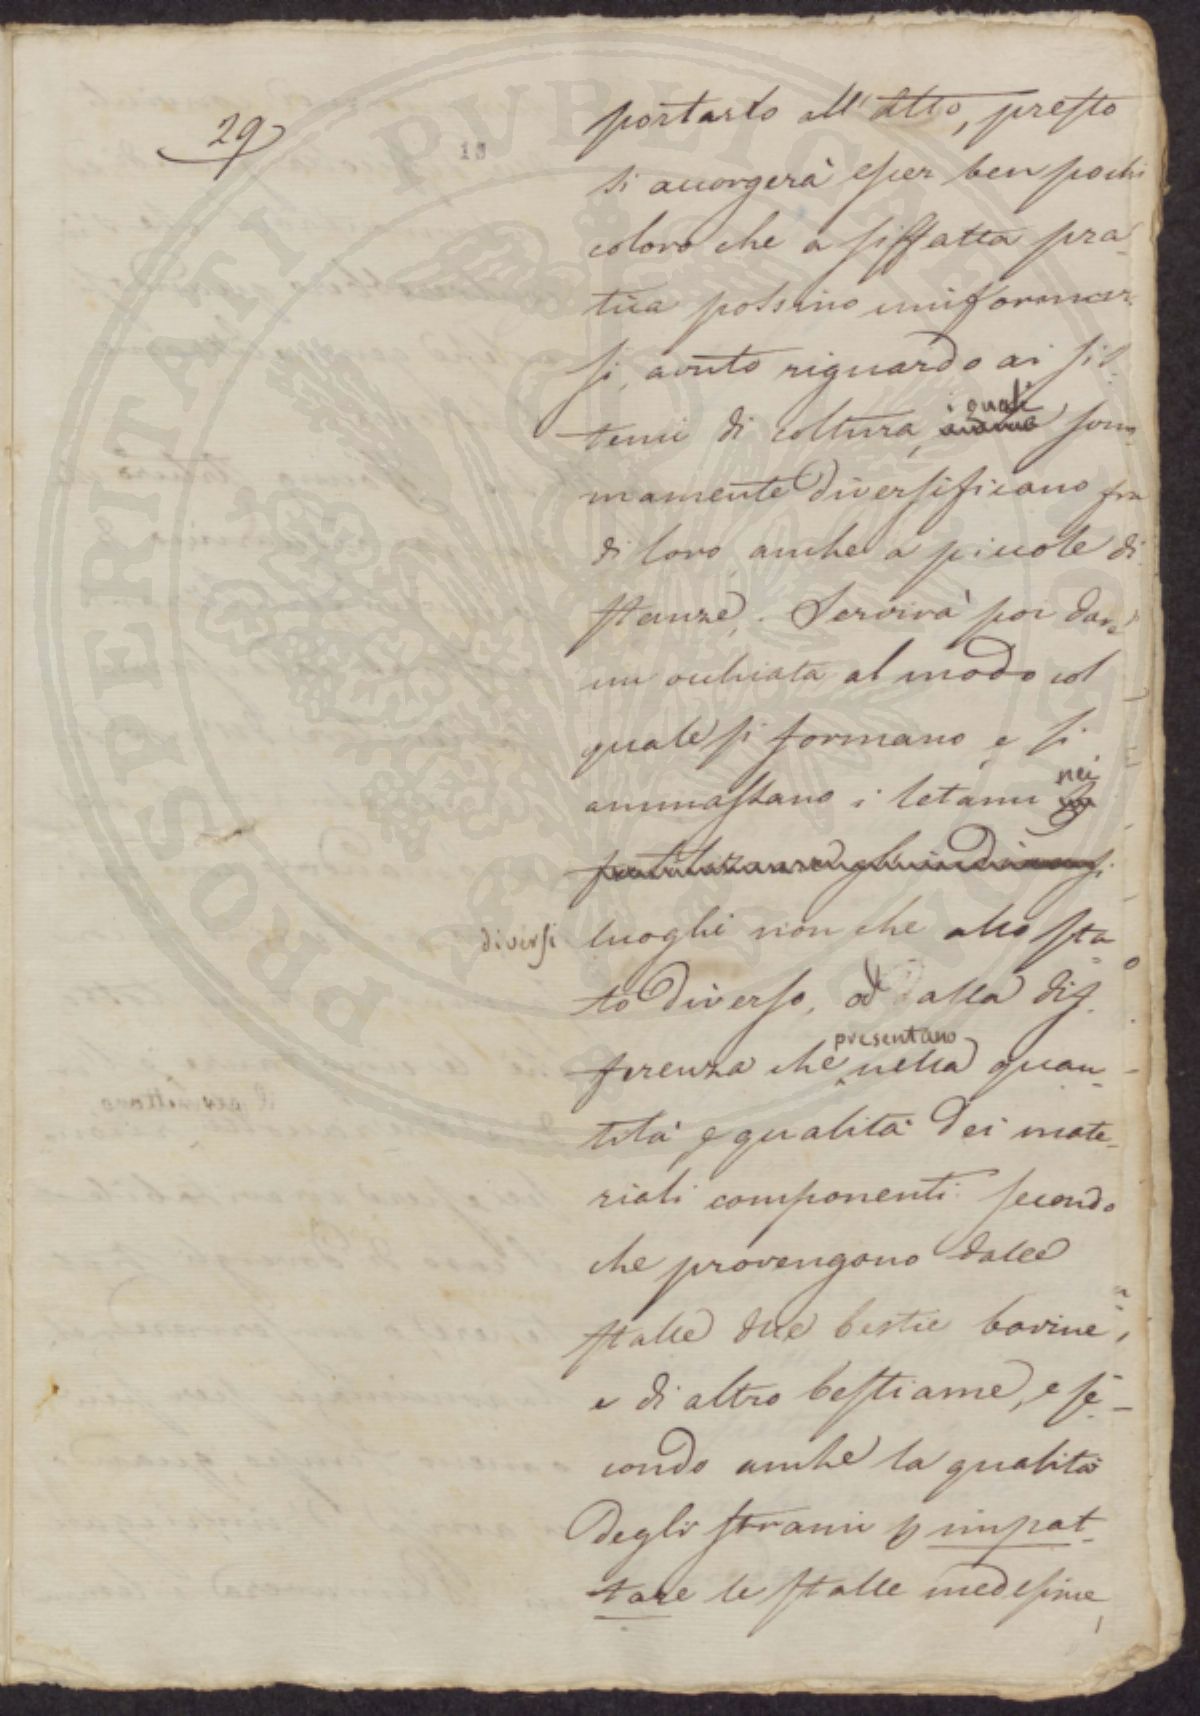 29
13
portarlo all'atto, presto
si accorgerà esser ben pochi
coloro che a siffatta pra-
tica possino uniformar-
si, avuto riguardo ai sis-
temi di coltura, i quali som-
mamente diversificano fra
di loro anche a piccole di-
stanze. Servirà poi dare
un occhiata al modo col
quale si formano, e si
ammassano i letami nei
diversi luoghi non che allo sta-
to diverso, ed alla dif-
ferenza che presentano nella quan-
tità e qualità dei mate-
riali componenti secondo
che provengono dalle
stalle delle bestie bovine,
e di altro bestiame, e se-
condo anche la qualità
degli strami p impat-
tare le stalle medesime,
PROSPERITATI PVBLICAE AVGENDAE